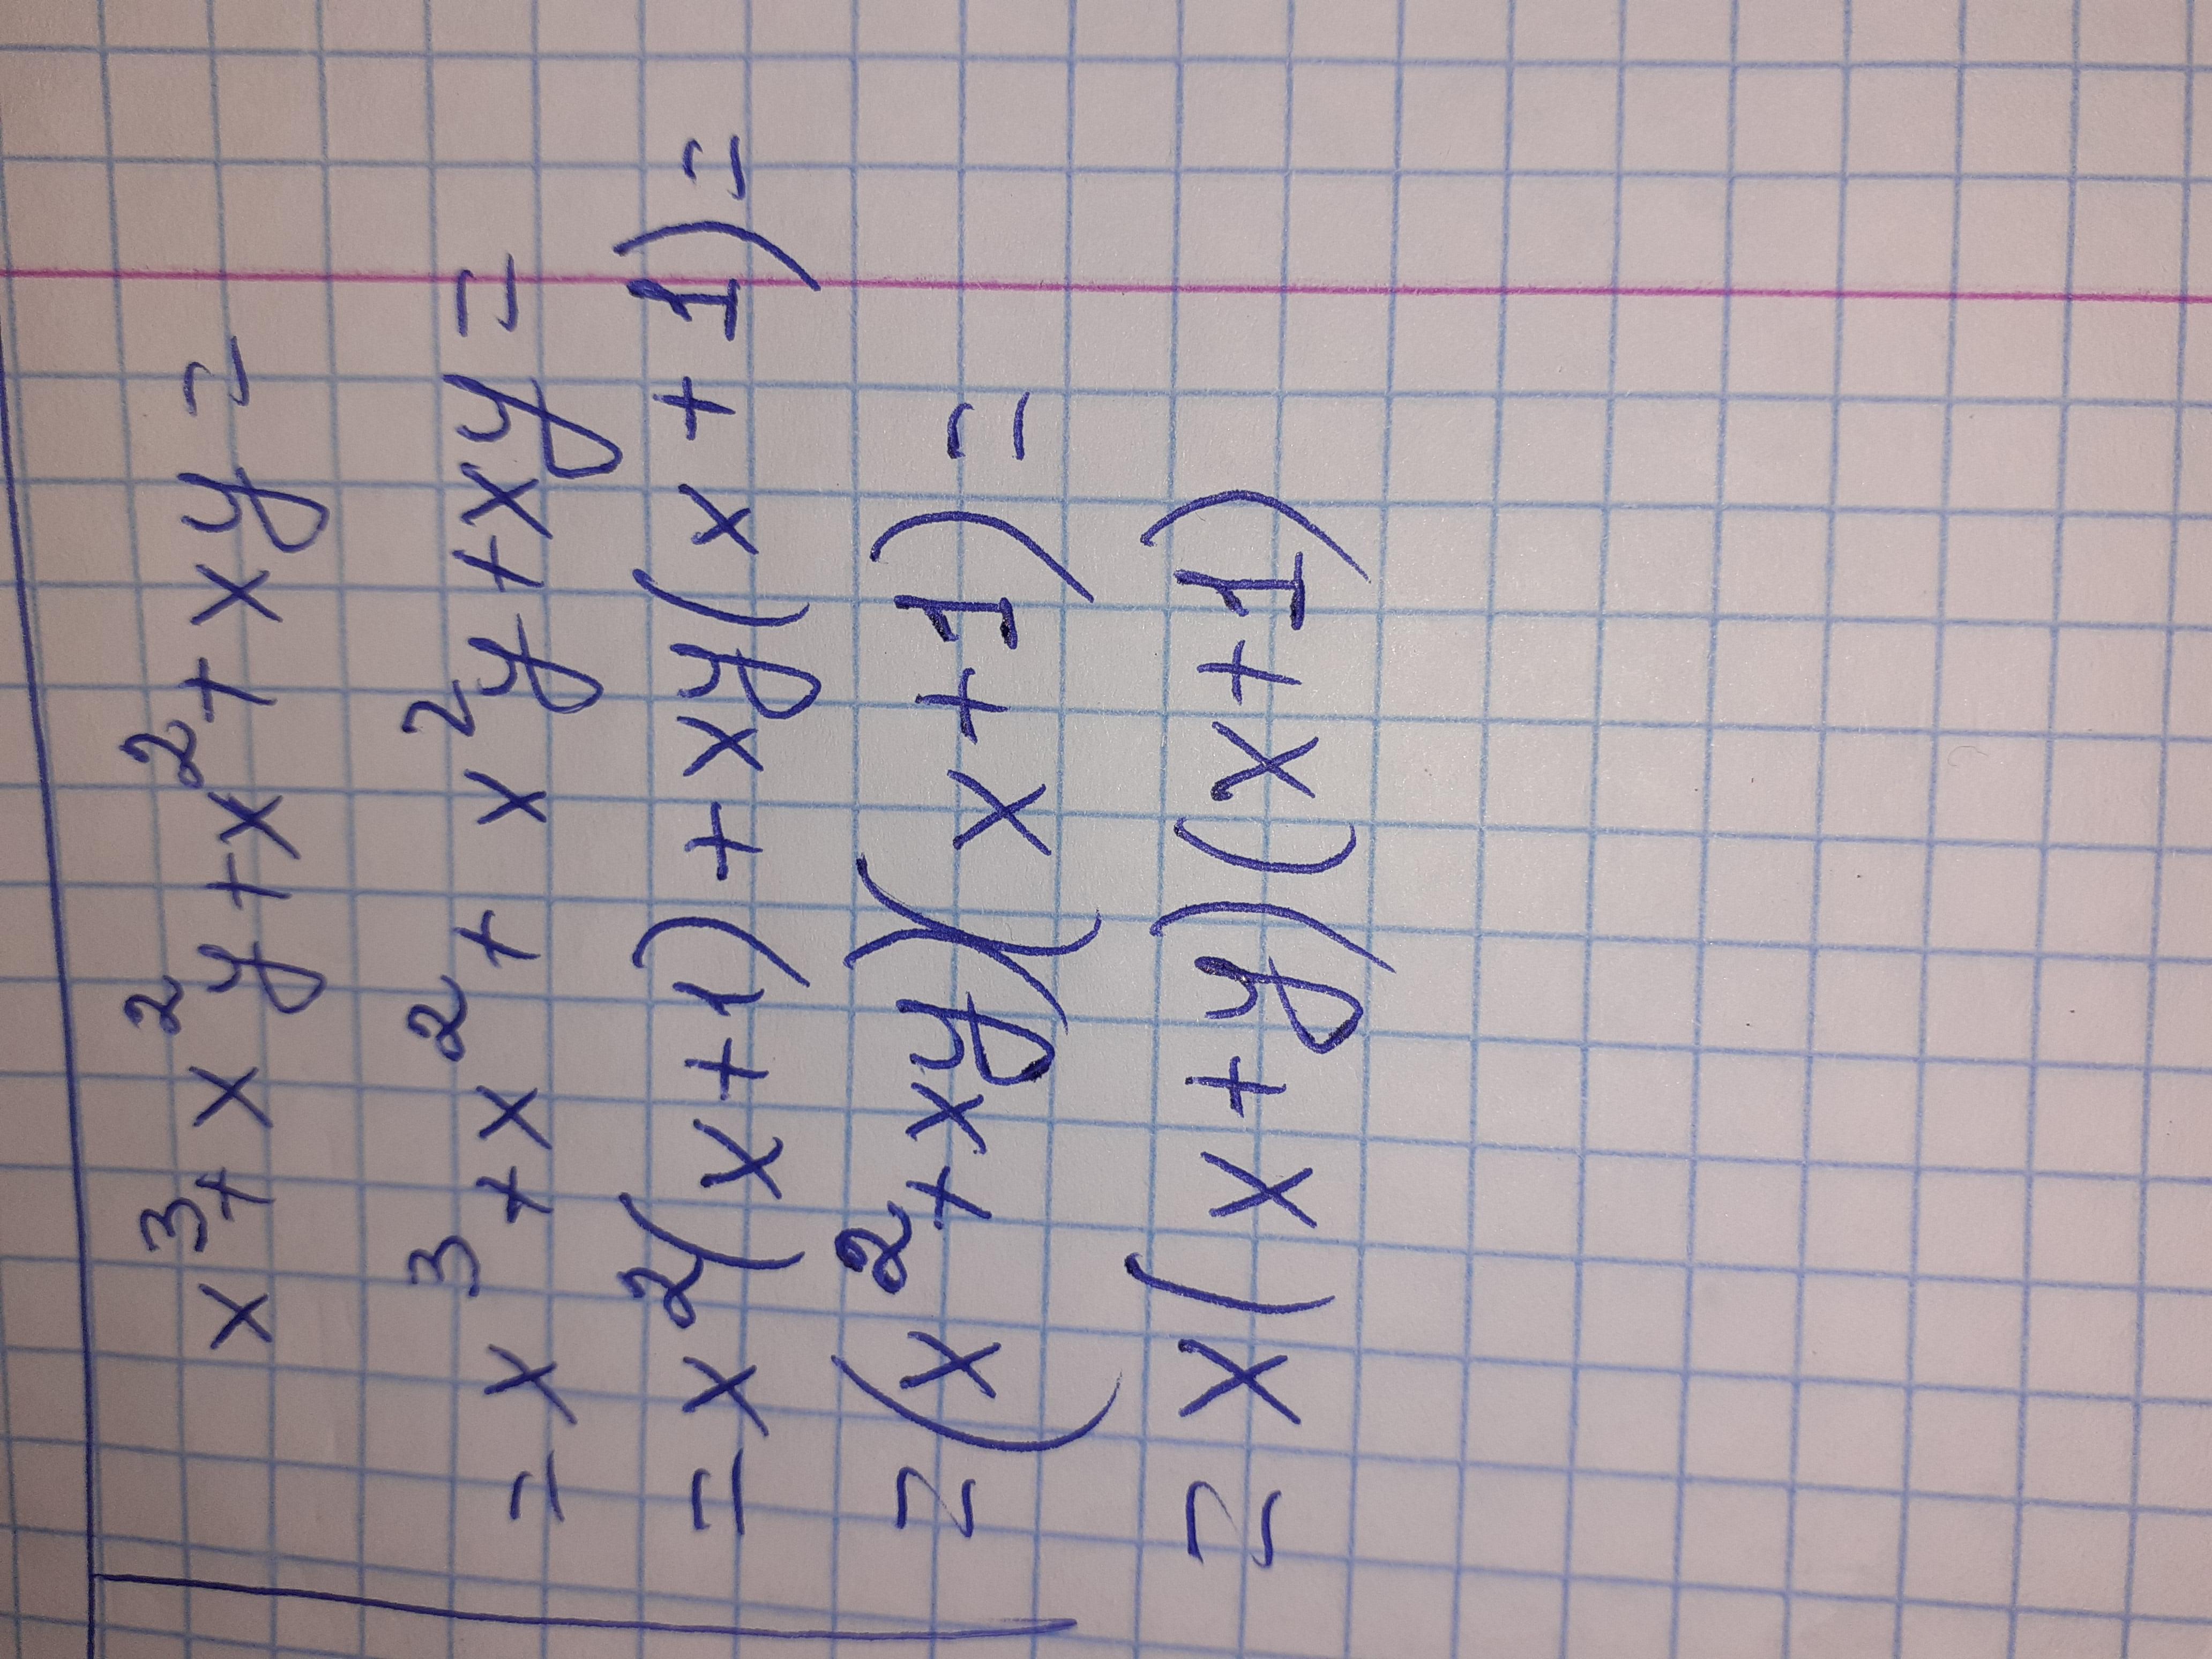 x³+x²y+x²+xy=
=x³+x²+x²y+xy=
=x²(x+1)+xy(x+1)=
=(x²+xy)(x+1)=
=x(x+y)(x+1)